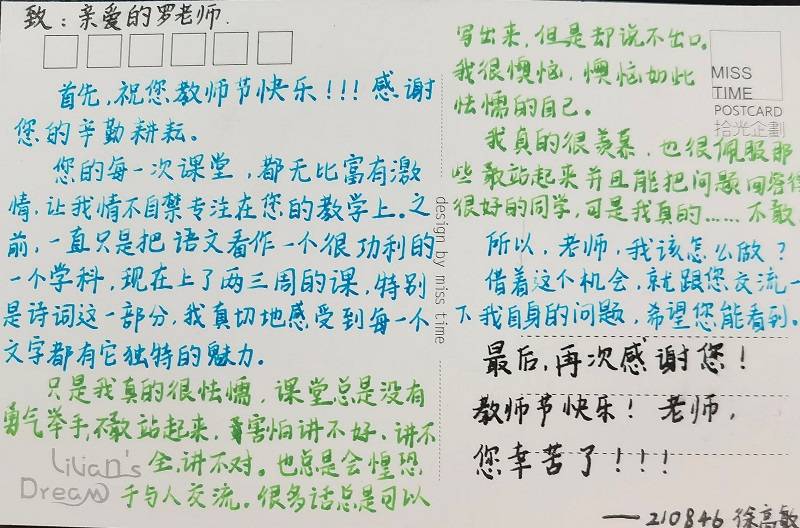 致：亲爱的罗老师.
首先，祝您教师节快乐！！！感谢
您的辛勤耕耘。
您的每一次课堂，都无比富有激
情，让我情不自禁专注在您的教学上。之
前，一直只是把语文看作一个很功利的
一个学科，现在上了两三周的课，特别
是诗词这一部分，我真切地感受到每一个
文字都有它独特的魅力。
只是我真的很怯懦，课堂总是没有
勇气举手，不敢站起来，害怕讲不好、讲不
全，讲不对。也总是会惶恐
于与人交流。很多话总是可以
Lilian's
Dream
design by miss time
写出来，但是却说不出口。
我很懊恼，懊恼如此
怯懦的自己。
MISS
TIME
POSTCARD
拾光企劃
我真的很羡慕，也很佩服那
些敢站起来并且能把问题回答得
很好的同学，可是我真的……不敢
所以，老师，我该怎么做？
借着这个机会，就跟您交流一
下我自身的问题，希望您能看到。
最后，再次感谢您！
教师节快乐！老师，
您辛苦了！！！
——210846 徐高敏